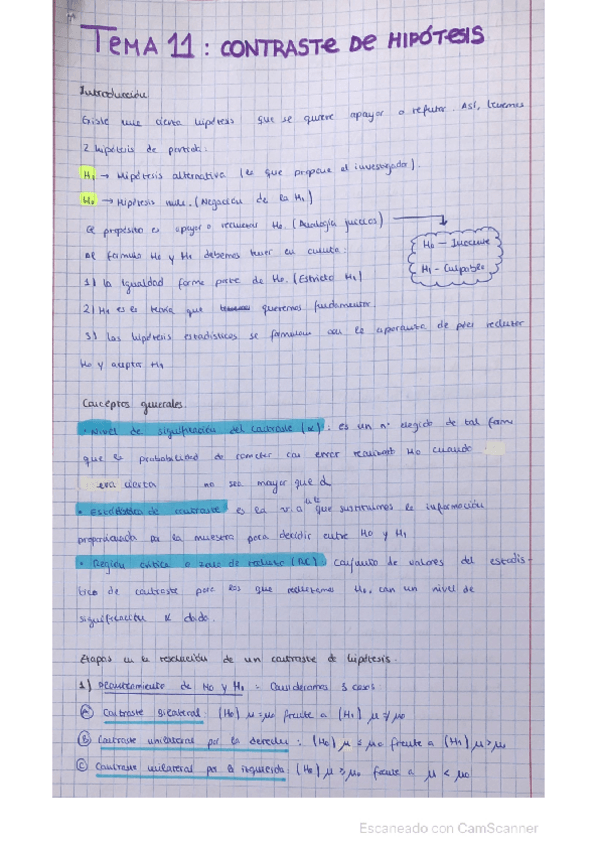 TEMA 11: CONTRASTE DE HIPÓTESIS
Introducción
Existe una cierta hipótesis que se quiere apoyar o refutar. Así, tenemos
2 hipótesis de partida:
H1 → Hipótesis alternativa (la que propone el investigador).
H0 → Hipótesis nula. (Negación de la H1)
El propósito es apoyar o rechazar H0. (Analogía juicios)
H0 — Inocente
H1 - Culpable
Al formular H0 y H1 debemos tener en cuenta:
1) La igualdad forma parte de H0. (Estricto H1)
2) H1 es la teoría que queremos fundamentar.
3) Las hipótesis estadísticas se formulan con la esperanza de poder rechazar
H0 y aceptar H1
Conceptos generales.
• Nivel de significación del contraste (α): es un nº elegido de tal forma
que la probabilidad de cometer error H0 cuando
era cierta no sea mayor que α
• Estadístico de contraste es la v.a que sustituimos la información
proporcionada por la muestra para decidir entre H0 y H1
• Región crítica o zona de rechazo (RC) Conjunto de valores del estadís-
tico de contraste para los que rechazamos H0, con un nivel de
significación α dado.
Etapas en la resolución de un contraste de hipótesis.
1) Planteamiento de H0 y H1 - Consideramos 3 casos
A Contraste bilateral: (H0) μ = μ0 frente a (H1) μ ≠ μ0
B Contraste unilateral por la derecha: (H0) μ ≤ μ0 frente a (H1) μ > μ0
C Contraste unilateral por la izquierda: (H0) μ ≥ μ0 frente a μ < μ0
Escaneado con CamScanner